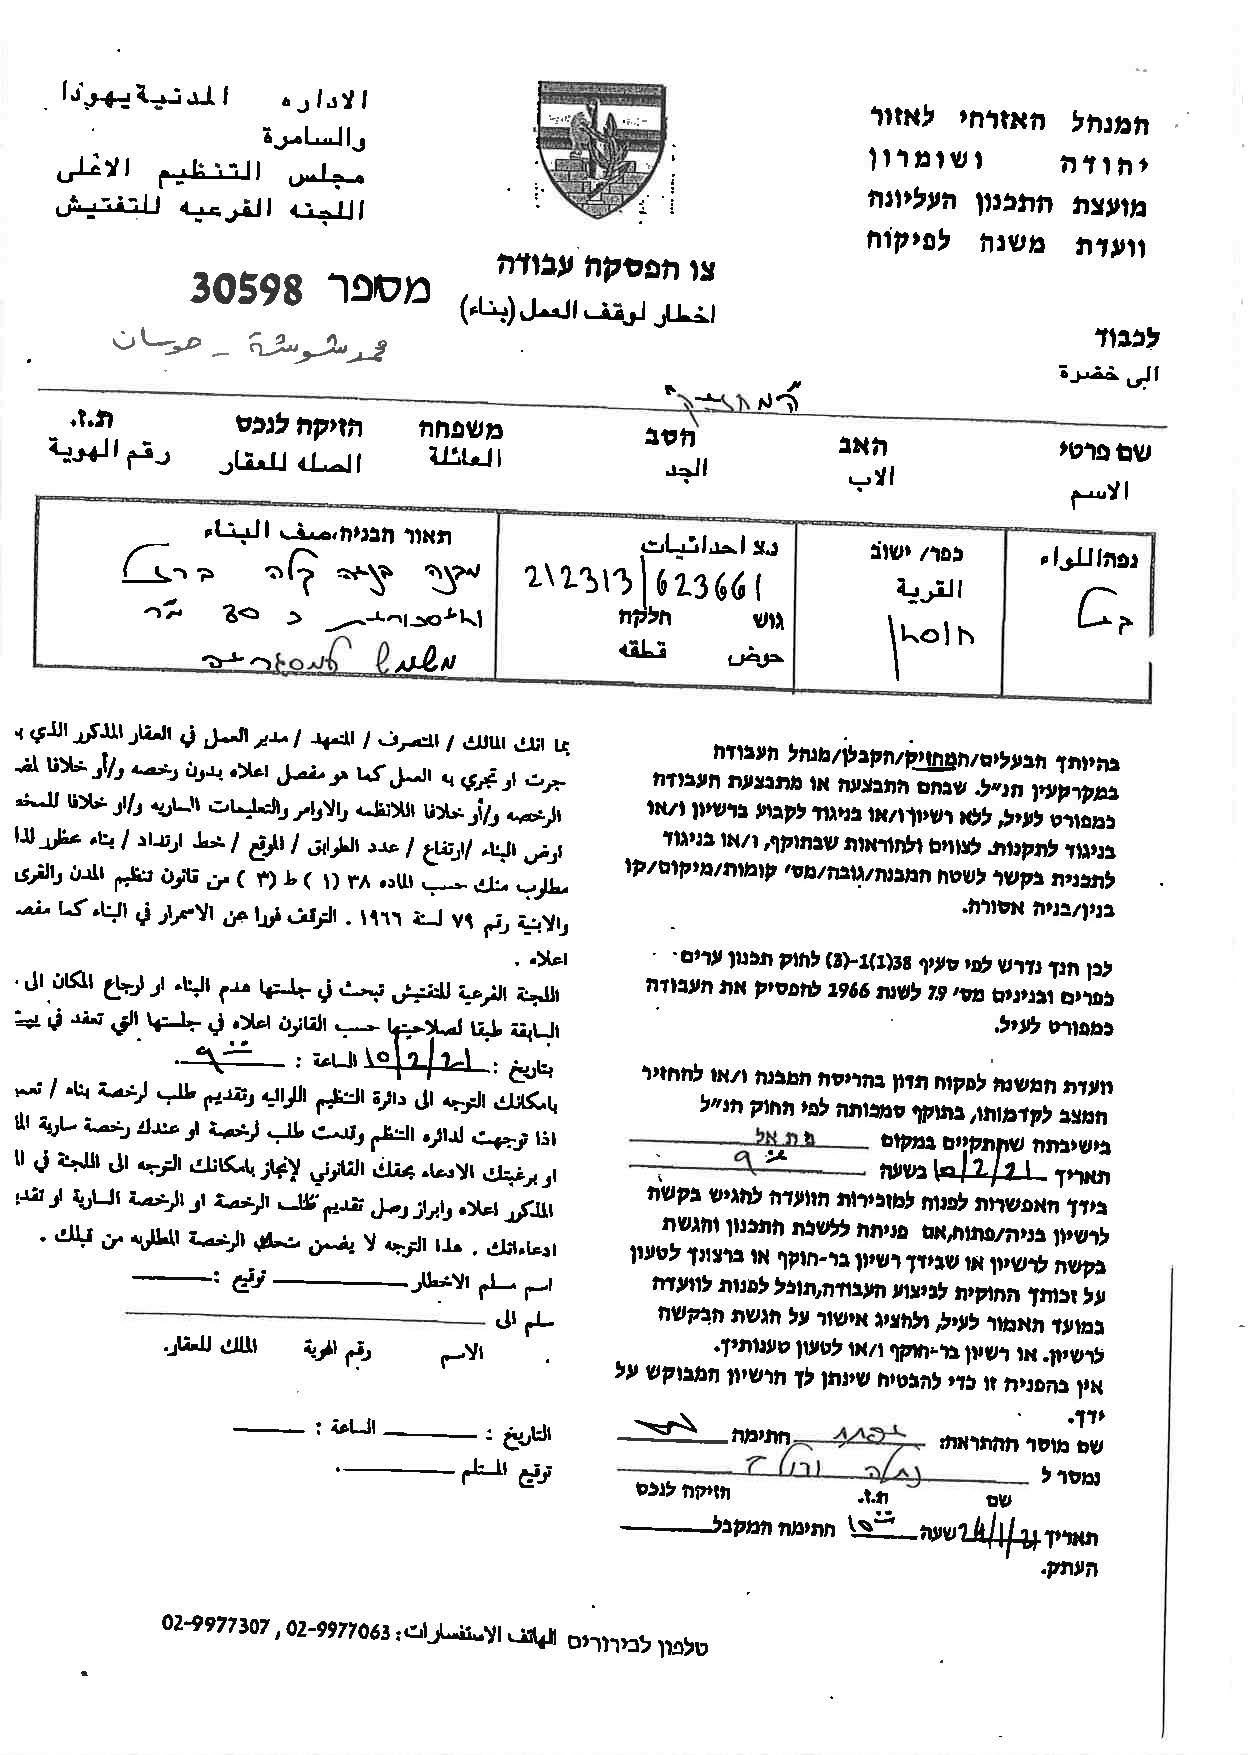 המנהל האזרחי לאזור
יהודה ושומרון
מועצת התכנון העליונה
וועדת משנה לפיקוח
الاداره المدنية يهودا
والسامرة
مجلس التنظيم الاعلى
اللجنه الفرعيه للتفتيش
צו הפסקה עבודה
اخطار لوقف العمل (بناء)
מספר 30598
محمد شوشة - حوسان
לכבוד
الى حضرة
"המחזיק"
שם פרטי האב הסב משפחה הזיקה לנכס ת.ז.
الاسم الاب الجد العائلة الصله للعقار رقم الهوية
נפה اللواء כפר/ ישוב נ.צ احداثيات תאור הבניה، صف البناء
القرية
חוסאן
212313/623661
גוש חלקה
حوض قطقه
מבנה בניה קלה ברזל
כ 30 מ"ר
משמש
בהיותך הבעלים/המחזיק/הקבלן/מנהל העבודה
במקרקעין הנ״ל. שבהם התבצעה או מתבצעת העבודה
כמפורט לעיל, ללא רשיון ו/או בניגוד לקבוע ברשיון ו/או
בניגוד לתקנות. לצווים ולהוראות שבתוקף, ו/או בניגוד
לתכנית בקשר לשטח המבנה/גובה/מס׳ קומות/מיקום/קו
בנין/בניה אסורה.
לכן הנך נדרש לפי סעיף 38(1)-1(3) לחוק תכנון ערים
כפרים ובנינים מס׳ 79 לשנת 1966 להפסיק את העבודה
כמפורט לעיל.
וועדת המשנה לפקוח תדון בהריסה המבנה ו/או להחזיר
המצב לקדמותו, בתוקף סמכותה לפי החוק הנ״ל
בישיבתה שתתקיים במקום בת אל
תאריך 10/2/21 בשעה 9:00
בידך האפשרות לפנות למזכירות הוועדה להגיש בקשה
לרשיון בניה/פתוח,אם פניתה ללשכת התכנון והגשת
בקשה לרשיון או שבידך רשיון בר-תוקף או ברצונך לטעון
על זכותך החוקית לביצוע העבודה,תוכל לפנות לוועדה
במועד האמור לעיל, ולהציג אישור על הגשת הבקשה
לרשיון. או רשיון בר-תוקף ו/או לטעון טענותיך.
אין בהפניה זו כדי להבטיח שינתן לך הרשיון המבוקש על
ידך.
שם מוסר ההתראה: חתימה
נמסר ל
שם ת.ז. הזיקה לנכס
תאריך 24/1/21 שעה 10:00 חתימה המקבל
העתק.
بما انك المالك / المتصرف / المتعهد / مدير العمل في العقار المذكرر الذي بـ
جرت او تجري به العمل كما هو مفصل اعلاه بدون رخصه و/أو خلافا لمضـ
الرخصه و/أو خلافا اللانظمه والاوامر والتعليمات الساريه و/او خلافا للمخـ
ارض البناء /ارتفاع / عدد الطوابق / الموقع / خط ارتداد / بناء عظرر لذا
مطلوب منك حسب الماده ٣٨ (١) ط (٣) من قانون تنظيم المدن والقرى
والابنية رقم ٧٩ لسنة ١٩٦٦ . التوقف فورا عن الاسمرار في البناء كما مفصـ
اعلاه .
اللجنة الفرعية للتفتيش تبحث في جلستها هدم البناء او لرجاع المكان الى .
السابقة طبقا لصلاحيتها حسب القانون اعلاه في جلستها التي تعقد في بيت
بتاريخ : 10/2/21 الساعة : 9:00
بامكانك التوجه الى دائرة التنظيم اللوائيه وتقديم طلب لرخصة بناء / تعمـ
اذا توجهت لدائره التنظم وقدمت طلب لرخصة او عندك رخصة سارية المـ
او برغبتك الادعاء بحقك القانوني لإنجاز بامكانك التوجه الى اللجنة في الـ
المذكرر اعلاه وابراز وصل تقديم طلب الرخصة او الرخصة السارية او تقديـ
ادعاءاتك . هذا التوجه لا يضمن منحك الرخصة المطلوبه من قبلك .
اسم مسلم الاخطار توقيع :
سلم الى
الاسم رقم الهوية المالك للعقار.
التاريخ : الساعة :
توقيع المستلم
טלפון לבירורים الهاتف الاستفسارات: 02-9977063 , 02-9977307